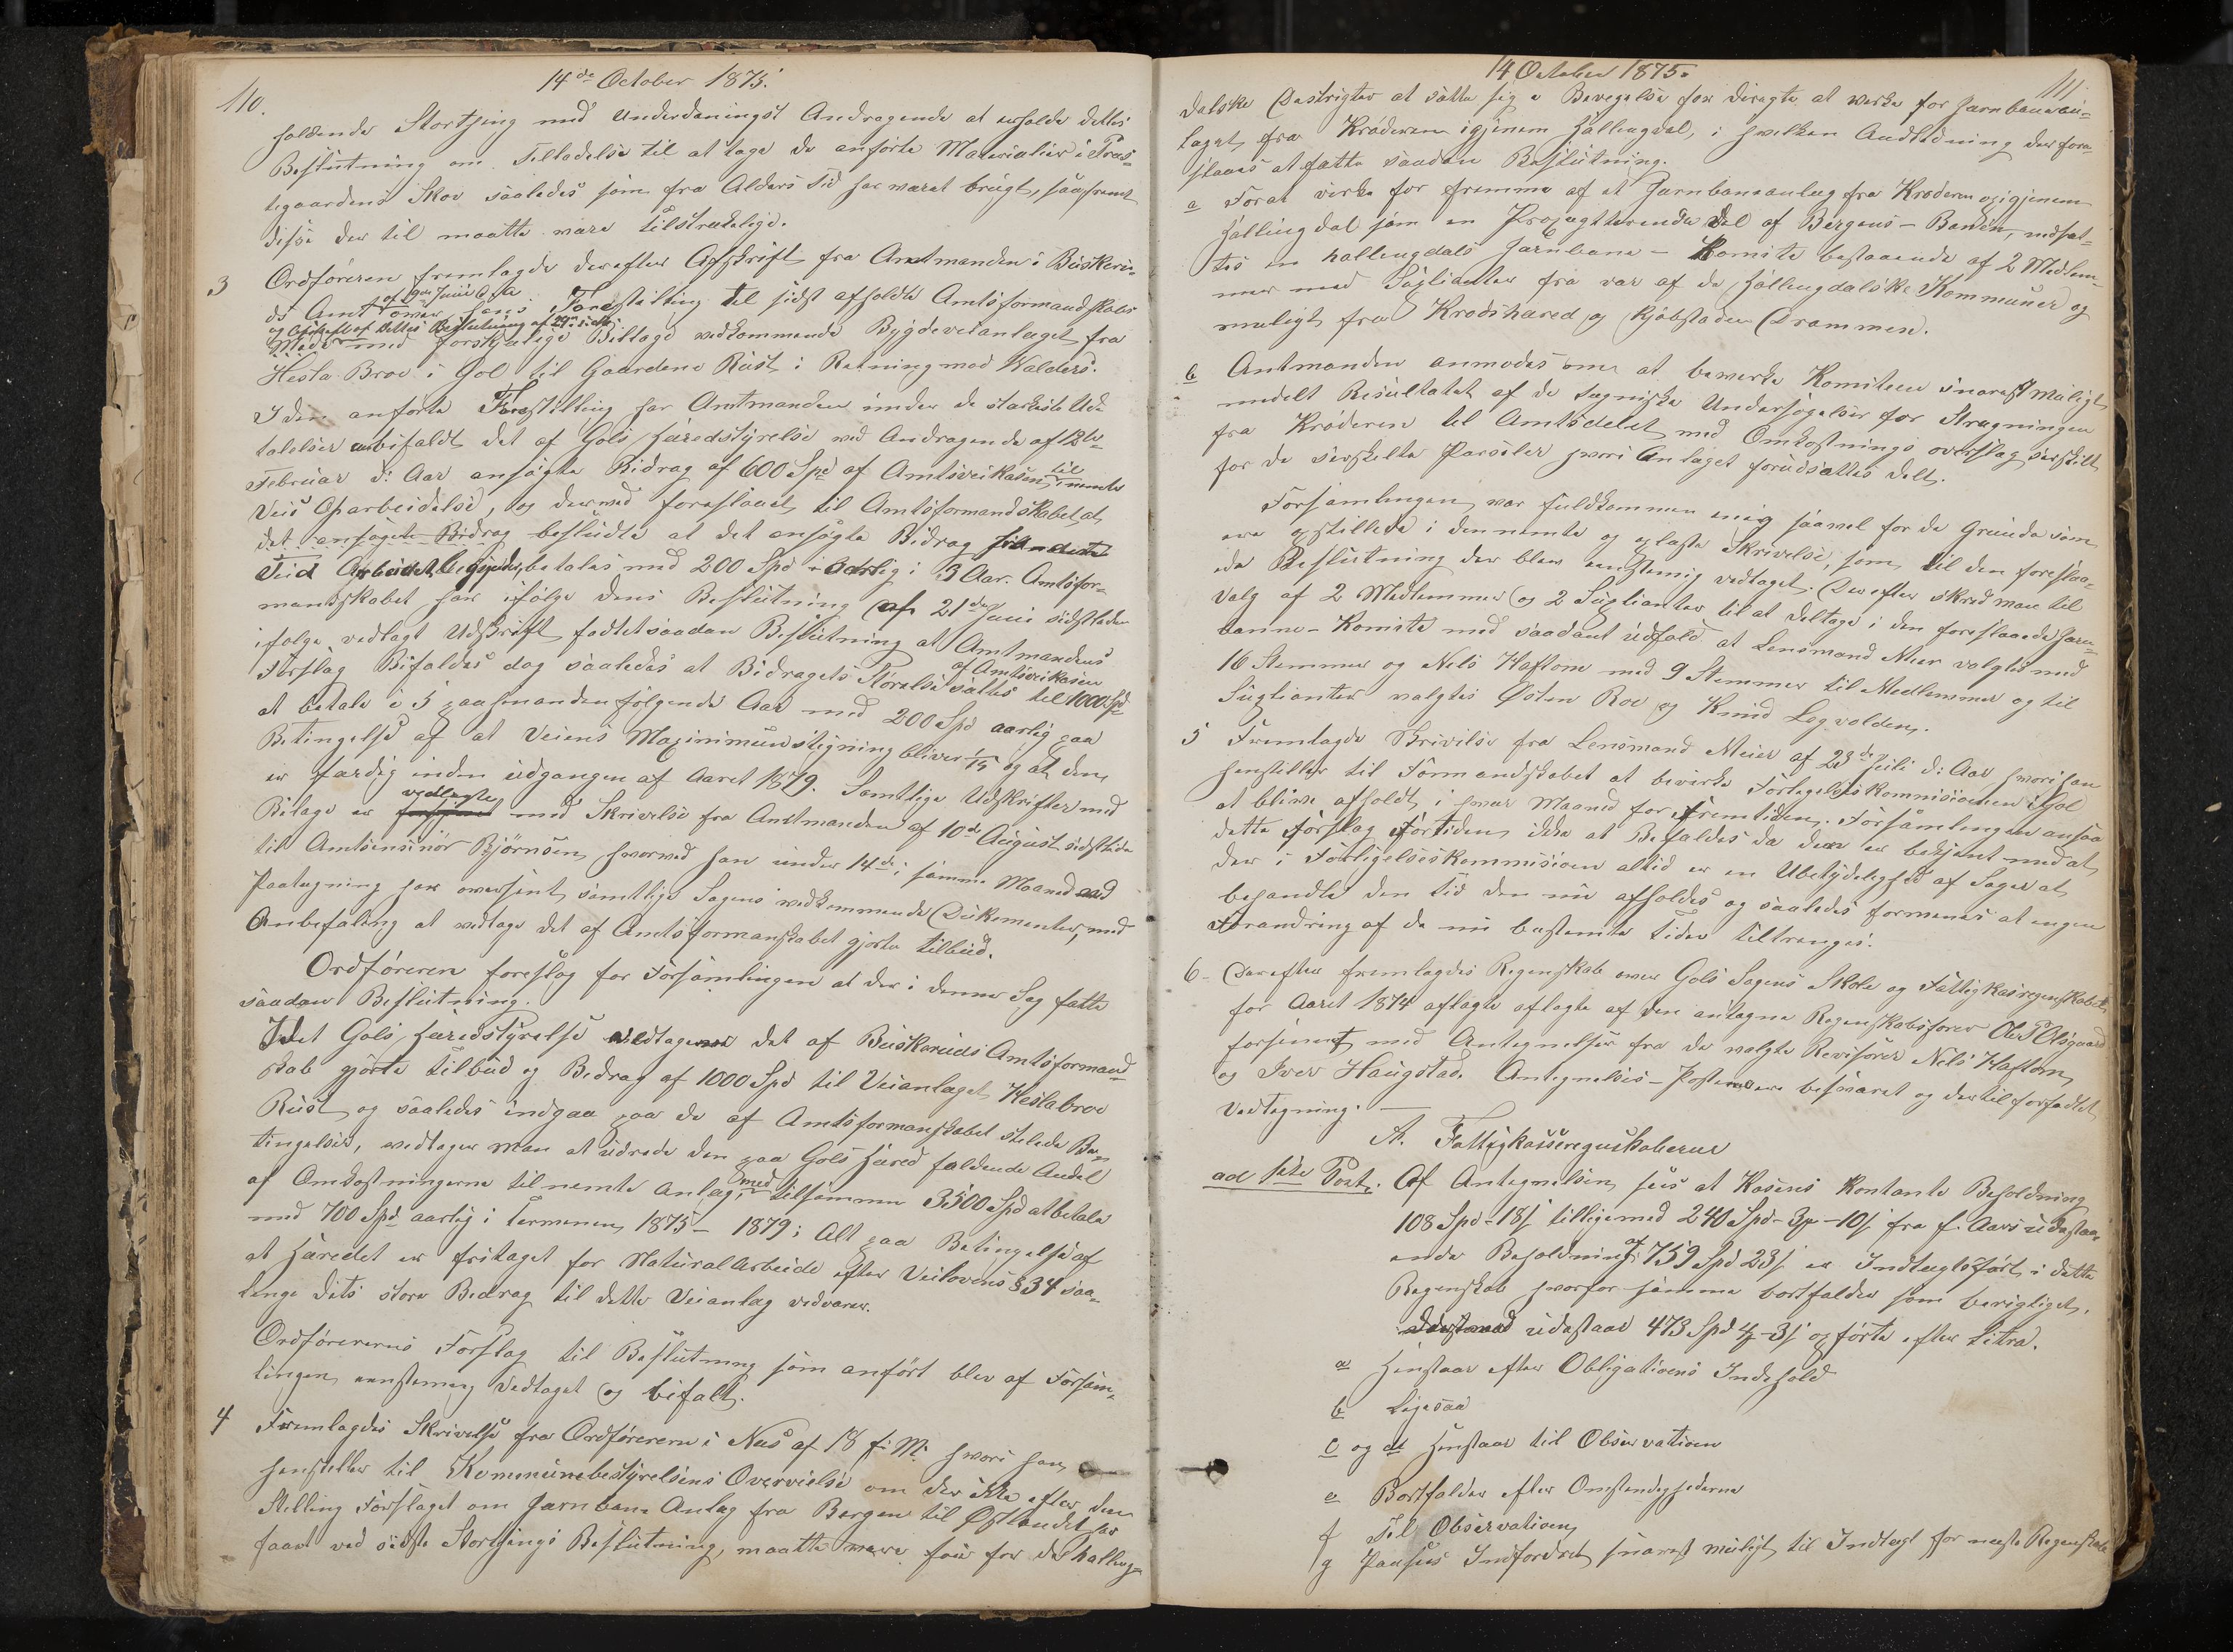 110.
14de October 1875.
holdende Storthing med Underdaningst Andragende at erholde dettes
Beslutning om Tilladelse til at tage de anførte Materialier i Præs-
tegaardens Skov saaledes som fra Alders tid har været brugt, saafremt
disse der til maatte være tilstrækelige.
3 Ordføreren fremlagde derefter Afskrift fra Amtmanden i Buskeru-
ds Amt over hans Forestilling til sidst afholdte Amtsformandskabs
af 9de Juni d. A.
og Afskrift af dettes Beslutning af 21de s. M.
Møde med forskjælige Billage vedkommende Bygdeveianlæget fra
Hesla Broe i Gol til Gaardene Rust i Retning mod Valders.
I den anførte Forestilling har Amtmanden under de stærkeste Ud-
talelser anbifaldt det af Gols Heredstyrelse ved Andragende af 12te
Februar d: Aar ansøgte Bidrag af 600 Spd af Amtsveikasen til nemte
Veis Oparbeidelse, og derved foreslaaet til Amtsformandskabet at
det ansøgte Bidrag besludte at det ansøgte Bidrag
Arbeidet begyndes, betales med 200 Spd aarlig i 3 Aar. Amtsfor-
mandskabet har ifølge dens Beslutning af 21de Juni sidstleden
ifølge vedlagt Udskrift fadtet saadan Beslutning at Amtmandens
Forslag Bifaldes dog saaledes at Bidragets Størelse af Amtsveikasen sættes til 1000 Spd
at betale i 5 paahinandenfølgende Aar med 200 Spd aarlig paa
Betingelse af at Veiens Maximimumstigning bliver 1/15 og at den
er færdig inden udgangen af Aaret 1879. Samtlige Udskrifter med
Bilage er vedlagte med Skrivelse fra Amtmanden af 10de August sidstleden
til Amtsinsinør Bjørnsen, hvormed han under 14de i samme Maaned med
Paategning har oversent samtlige Sagens vedkommende Dokumenter, med
Anbefaling at vedtage det af Amtsformanskabet gjorte tilbud.
Ordføreren foreslog for Forsamlingen at der i denne Sag fatte
saadan Beslutning.
Idet Gols Heredstyrelse vedtager det af Buskeruds Amtsformand-
skab gjorte tilbud og Bedrag af 1000 Spd til Veianlæget Heslabroe
Rust og saaledes indgaa paa de af Amtsformanskabet stillede Be-
tingelser, vedtager man at udrede den paa Gols Hered faldende Andel
af Omkostningerne til nemte Anlæg, med tilsammen 3500 Spd at betale
med 700 Spd aarlig i Terminen 1875 - 1879; Alt paa Betingelse af
at Heredet er fritaget for Naturalarbeide efter Veilovens § 34 saa-
længe dets store Bedrag til dette Veianlæg vedvarer.
Ordførerens Forslag til Beslutning som anført blev af Forsam-
lingen enstemig vedtaget og bifalt.
4 Fremlagdes Skrivelse fra Ordføreren i Nes af 18 f. M. hvori han
henstiller til Kommunebestyrelsens Overveielse om der ikke efter den
Stilling Forslaget om Jernbane Anlæg fra Bergen til Østlandet har
faaet ved sidste Storthings Beslutning, maatte være for de halling-
14 October 1875.
111
dalske Destrigter at sætte sig i Bevægelse for diregte at virke for Jernbanean-
læget fra Krøderen igjenem Hallingdal, i hvilken Andledning der fore-
slaaes at fatte saadan Beslutning.
a Forat virke for fremme af et Jernbaneanlæg fra Krøderen og igjenem
Hallingdal som en Projegtterende Del af Bergens-Banen, nedsæt-
tes en hallingdals Jernbane - Komite bestaaende af 2 Medlem-
mer med Suplianter fra vær af de Hallingdalske Kommuner og
muligt fra Krødshered og Kjøbstaden Drammen.
b Amtmanden anmodes om at bevirke Komiteen snarest muligt
medelt Resultatet af de tegniske Undersøgelser for Strægningen
fra Krøderen til Amtsdelet med Omkostnings overslag særskilt
for de særskelte Parseler hvori Anlæget forudsættes delt.
Forsamlingen var fuldkommen enig saavel for de Grunde som
ere opstillede i den nemte og oplæste Skrivelse, som til den foreslaa-
ede Beslutning der blev enstemig vedtaget. Derefter skred man til
Valg af 2 Medlemmer og 2 Suplianter til at deltage i den foreslaaede Jern-
banne-Komite med saadant udfald at Lensmand Meier valgtes med
16 Stemmer og Nels Haftorn med 9 Stemmer til Medlemmer og til
Suplianter valgtes Østen Roe og Knud Legvolden.
5 Fremlagde Skrivelse fra Lensmand Meier af 23de Juli d: Aar hvori han
henstiller til Formandskabet at bevirke Forligelseskommisionen i Gol
at blive afholdt i hver Maaned for Fremtiden. Forsamlingen ansaa
dette Forslag Fortiden ikke at Befaldes da den er bekjent med at
der i Forligelseskommisionen altid er en Ubetydelighed af Sager at
behandle den tid den nu afholdes og saaledes formenes at ingen
Forandring af de nu bestemte tider tiltrenges.
6- Derefter fremlagdes Regenskab over Gols Sogens Skole og Fattigkasregenskabet
for Aaret 1874 aflagte aflagte af den antagne Regenskabsfører Ole P Olsgaard
forsinet med Antegnelser fra de valgte Revisorer Nels Haftorn
og Iver Haugstad. Antegnelses-Posterne ere besvaret og dertil forfadtet
Vedtegning. —
A. Fattigkasseregnskaberne
ad 1ste Post. Af Antegnelsen sees at Kasens Kontante Beholdning
108 Spd - 18 s tilligemed 240 Spd - 3 - 10 s fra f. Aars udestaa-
ende Beholdning af 759 Spd 23 s er Indtægtsført i dette
Regenskab hvorfor samme bortfalder som berigtiget.
udestaar 473 Spd 4 - 3 s opførte efter Litra.
a Henstaar efter Obligationens Indehold
b Ligesaa
c og d Henstaar til Observation
e Bortfalder efter Omstendighederne
f Til Observation
g Paasees Indfordret snarest muligt til Indtægt for neste Regenskab